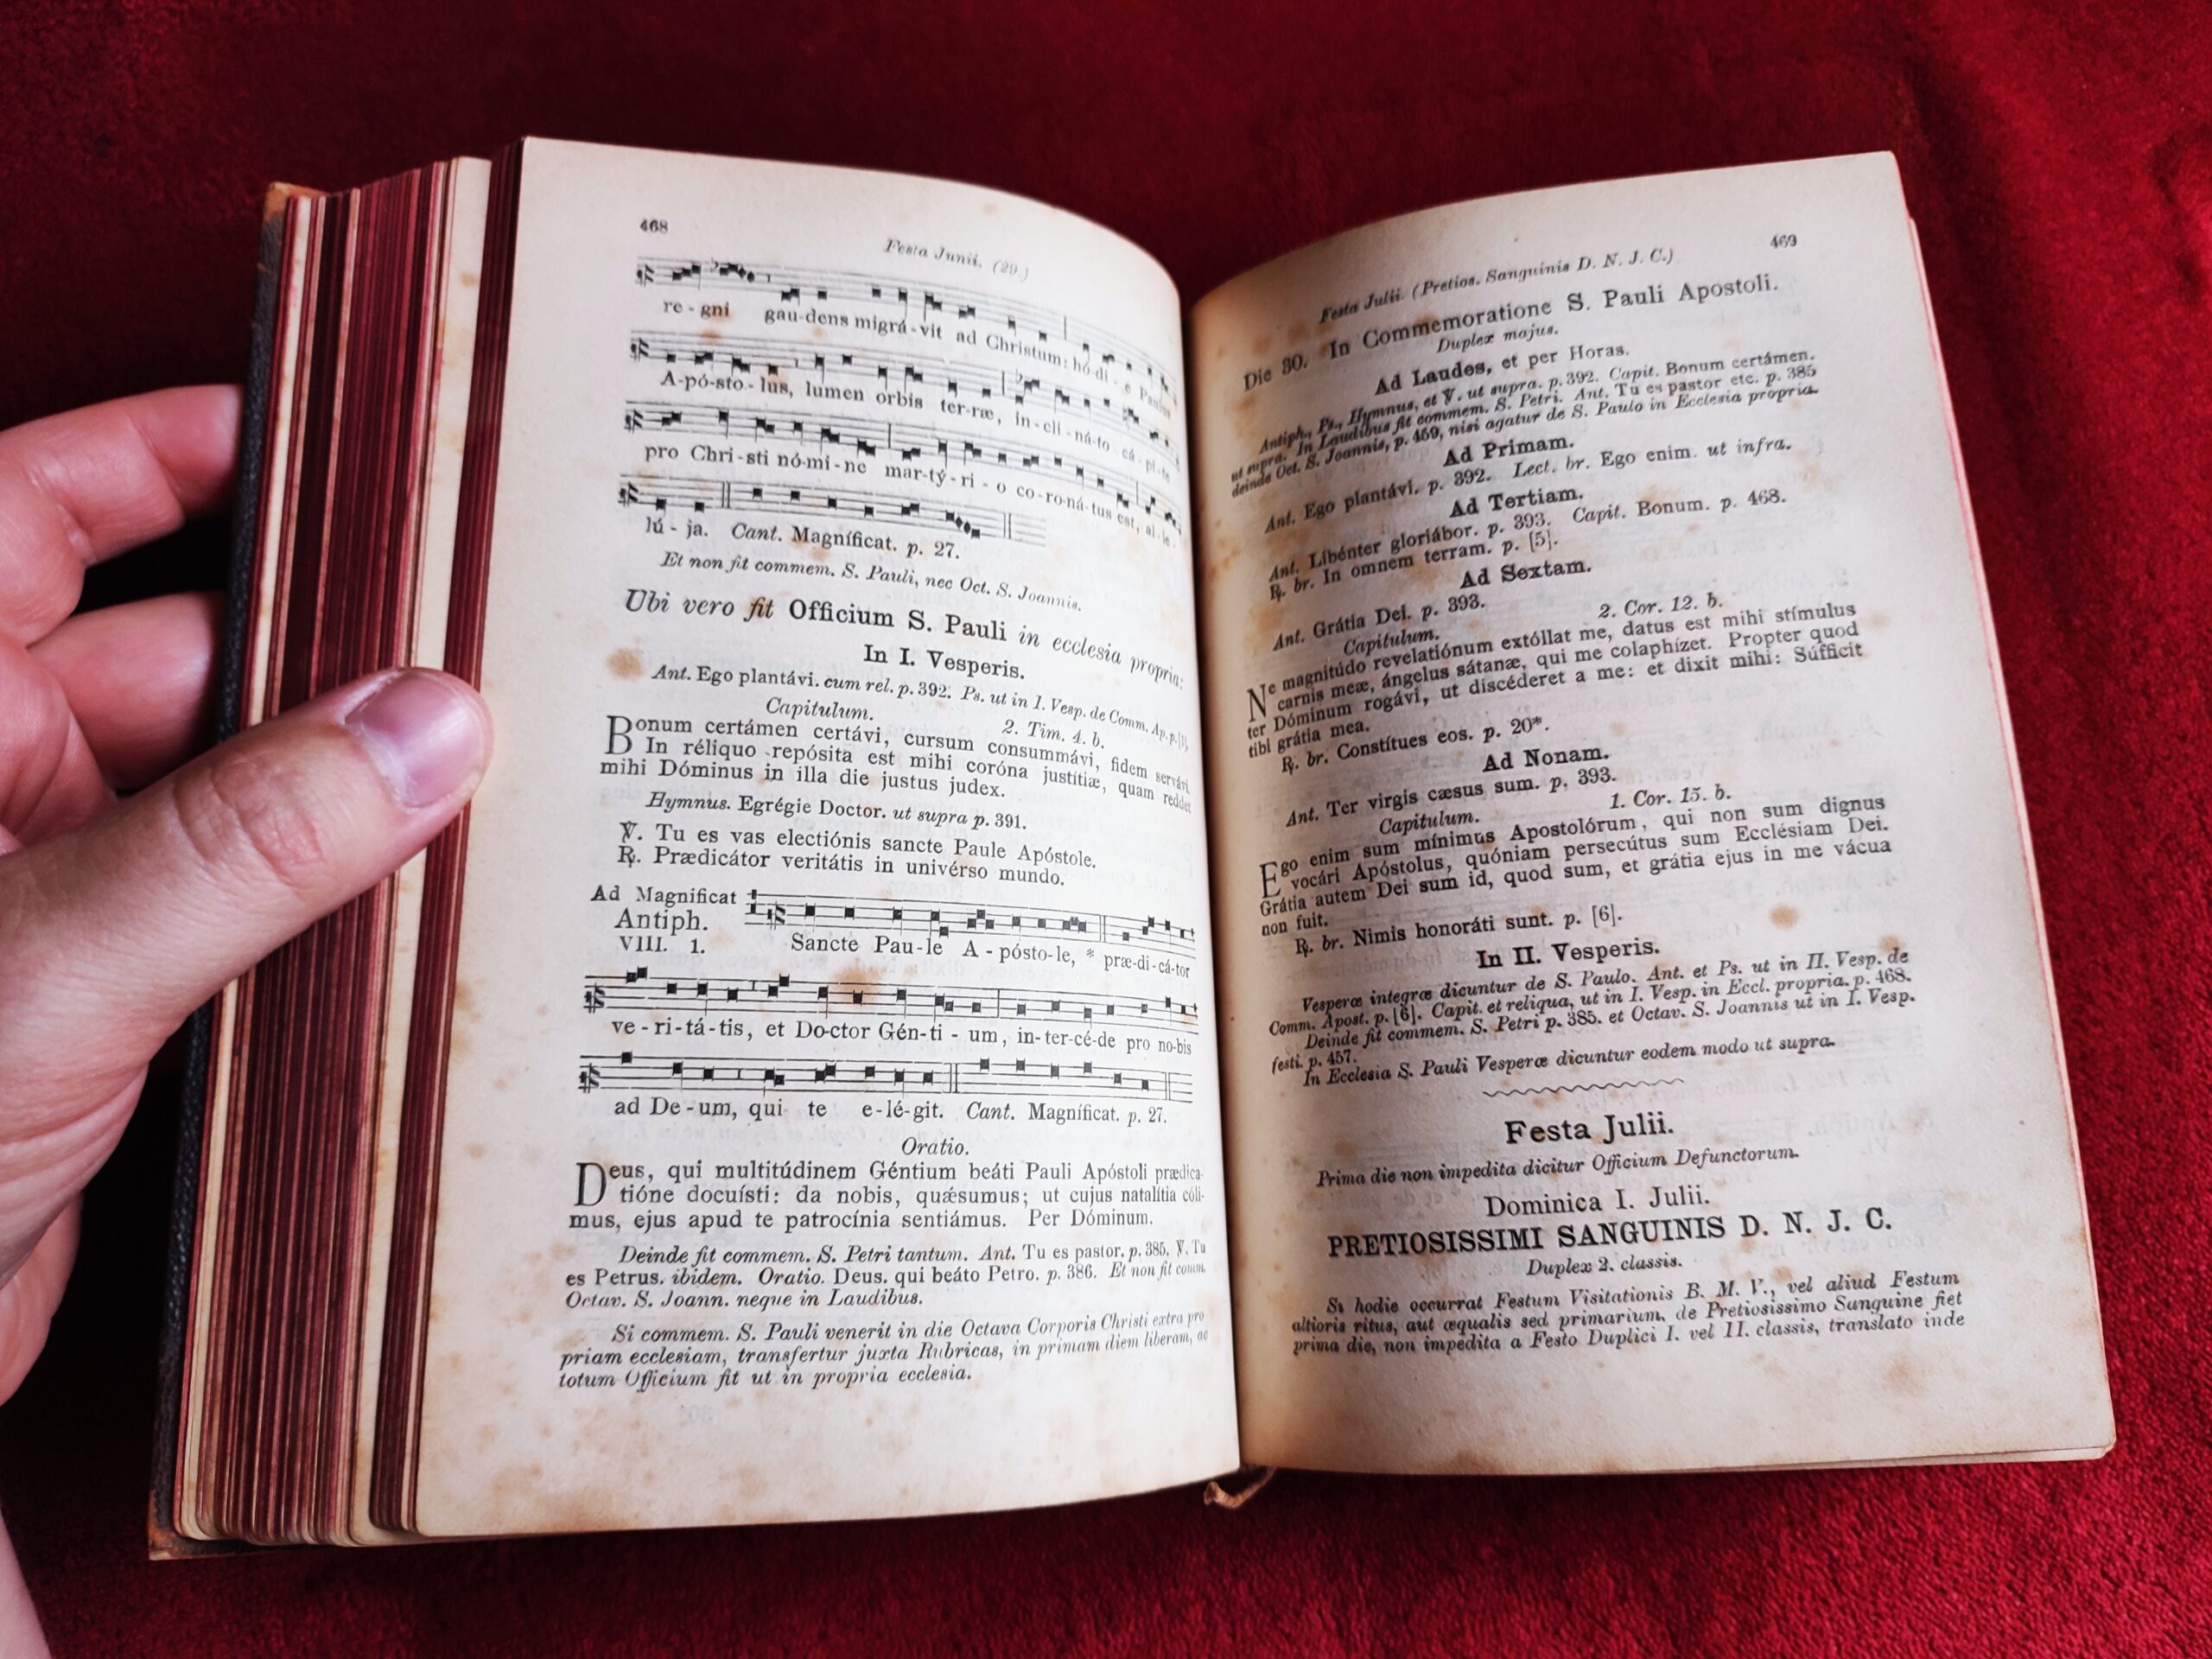 468
Festa Junii. (29.)
re - gni gau-dens migrá-vit ad Christum: hó-di - e Paulus
A-pó-sto - lus, lumen orbis ter-ræ, in-cli-ná-to cá-pi-te
pro Chri-sti nó-mi-ne mar-tý-ri - o co-ro-ná-tus est, al-le-
lú - ja. Cant. Magníficat. p. 27.
Et non fit commem. S. Pauli, nec Oct. S. Joannis.
Ubi vero fit Officium S. Pauli in ecclesia propria:
In I. Vesperis.
Ant. Ego plantávi. cum rel. p. 392. Ps. ut in I. Vesp. de Comm. Ap. p. [1].
Capitulum. 2. Tim. 4. b.
Bonum certámen certávi, cursum consummávi, fidem servávi.
In réliquo repósita est mihi coróna justítiæ, quam reddet
mihi Dóminus in illa die justus judex.
Hymnus. Egrégie Doctor. ut supra p. 391.
℣. Tu es vas electiónis sancte Paule Apóstole.
℟. Prædicátor veritátis in univérso mundo.
Ad Magnificat
Antiph.
VIII. 1.
Sancte Pau-le A - pósto-le, * præ-di-cá-tor
ve - ri-tá-tis, et Do-ctor Gén-ti - um, in-ter-cé-de pro no-bis
ad De-um, qui te e-lé-git. Cant. Magníficat. p. 27.
Oratio.
Deus, qui multitúdinem Géntium beáti Pauli Apóstoli prædica-
tióne docuísti: da nobis, quǽsumus; ut cujus natalítia cóli-
mus, ejus apud te patrocínia sentiámus. Per Dóminum.
Deinde fit commem. S. Petri tantum. Ant. Tu es pastor. p. 385. ℣. Tu
es Petrus. ibidem. Oratio. Deus. qui beáto Petro. p. 386. Et non fit comm.
Octav. S. Joann. neque in Laudibus.
Si commem. S. Pauli venerit in die Octava Corporis Christi extra pro
priam ecclesiam, transfertur juxta Rubricas, in primam diem liberam, ac
totum Officium fit ut in propria ecclesia.
Festa Julii. (Pretios. Sanguinis D. N. J. C.)
469
Die 30. In Commemoratione S. Pauli Apostoli.
Duplex majus.
Ad Laudes, et per Horas.
Antiph., Ps., Hymnus, et ℣. ut supra. p. 392. Capit. Bonum certámen.
ut supra. In Laudibus fit commem. S. Petri. Ant. Tu es pastor etc. p. 385
deinde Oct. S. Joannis, p. 459, nisi agatur de S. Paulo in Ecclesia propria.
Ad Primam.
Ant. Ego plantávi. p. 392. Lect. br. Ego enim. ut infra.
Ad Tertiam.
Ant. Libénter gloriábor. p. 393. Capit. Bonum. p. 468.
℟. br. In omnem terram. p. [5].
Ad Sextam.
Ant. Grátia Dei. p. 393.
Capitulum. 2. Cor. 12. b.
Ne magnitúdo revelatiónum extóllat me, datus est mihi stímulus
carnis meæ, ángelus sátanæ, qui me colaphízet. Propter quod
ter Dóminum rogávi, ut discéderet a me: et dixit mihi: Súfficit
tibi grátia mea.
℟. br. Constítues eos. p. 20*.
Ad Nonam.
Ant. Ter virgis cæsus sum. p. 393.
Capitulum. 1. Cor. 15. b.
Ego enim sum mínimus Apostolórum, qui non sum dignus
vocári Apóstolus, quóniam persecútus sum Ecclésiam Dei.
Grátia autem Dei sum id, quod sum, et grátia ejus in me vácua
non fuit.
℟. br. Nimis honoráti sunt. p. [6].
In II. Vesperis.
Vesperæ integræ dicuntur de S. Paulo. Ant. et Ps. ut in II. Vesp. de
Comm. Apost. p. [6]. Capit. et reliqua, ut in I. Vesp. in Eccl. propria. p. 468.
Deinde fit commem. S. Petri p. 385. et Octav. S. Joannis ut in I. Vesp.
festi. p. 457.
In Ecclesia S. Pauli Vesperæ dicuntur eodem modo ut supra.
Festa Julii.
Prima die non impedita dicitur Officium Defunctorum.
Dominica I. Julii.
PRETIOSISSIMI SANGUINIS D. N. J. C.
Duplex 2. classis.
Si hodie occurrat Festum Visitationis B. M. V., vel aliud Festum
altioris ritus, aut æqualis sed primarium, de Pretiosissimo Sanguine fiet
prima die, non impedita a Festo Duplici I. vel II. classis, translato inde